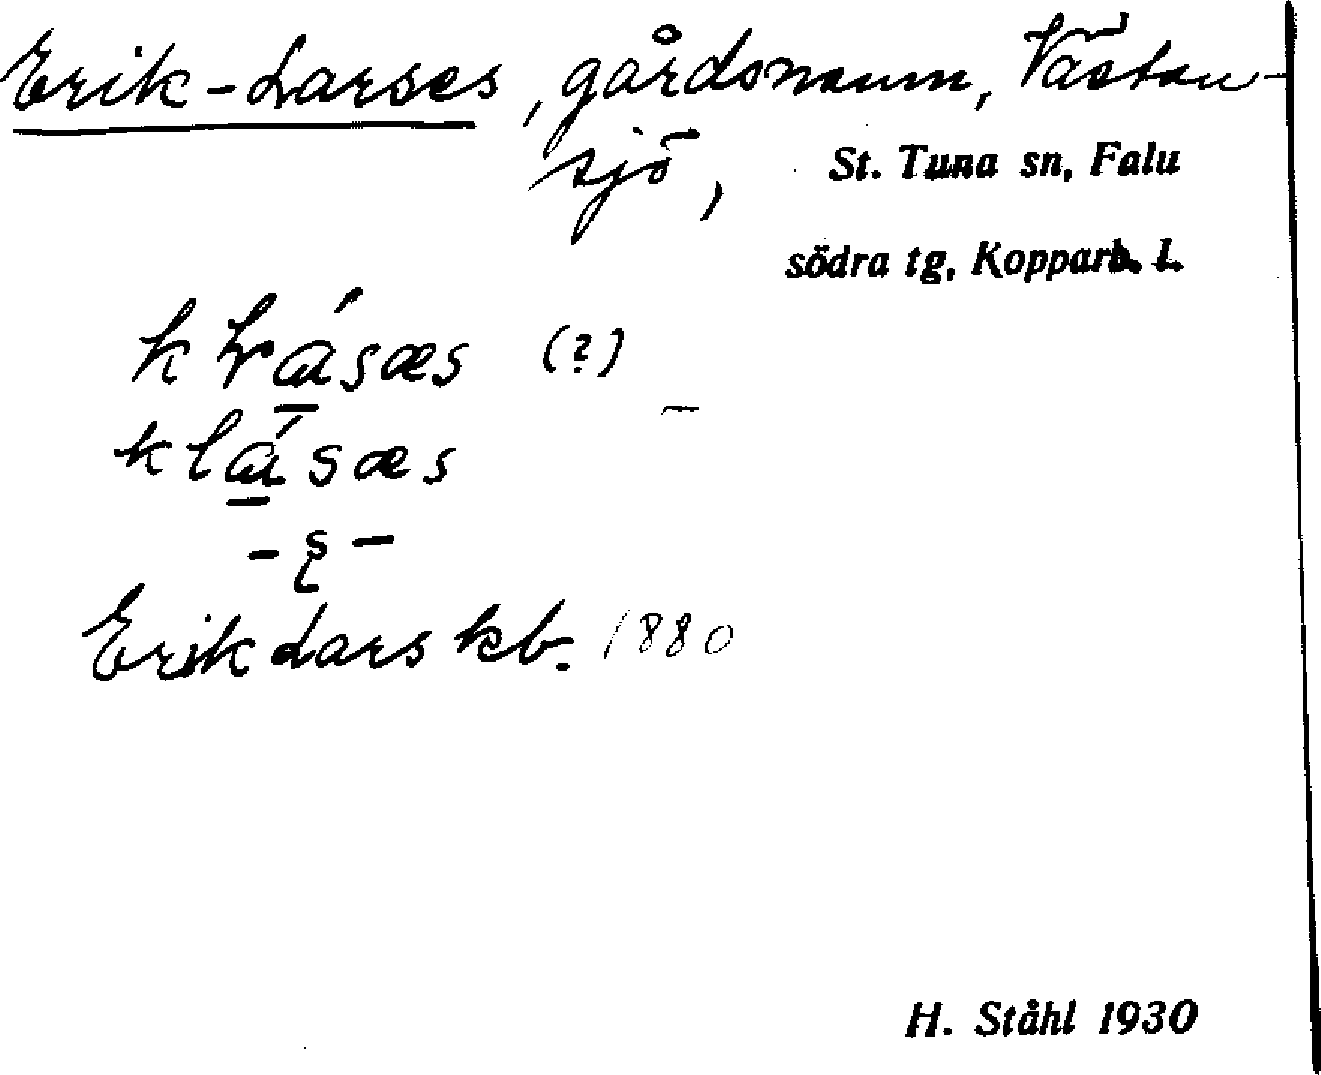 Erik-Larses, gårdsnamn, Västan-
sjö, St. Tuna sn, Falu
södra tg, Kopparb. l.
k lrásæs (?)
klásæs
- ʂ -
Erik Lars kb. 1880
H. Ståhl 1930